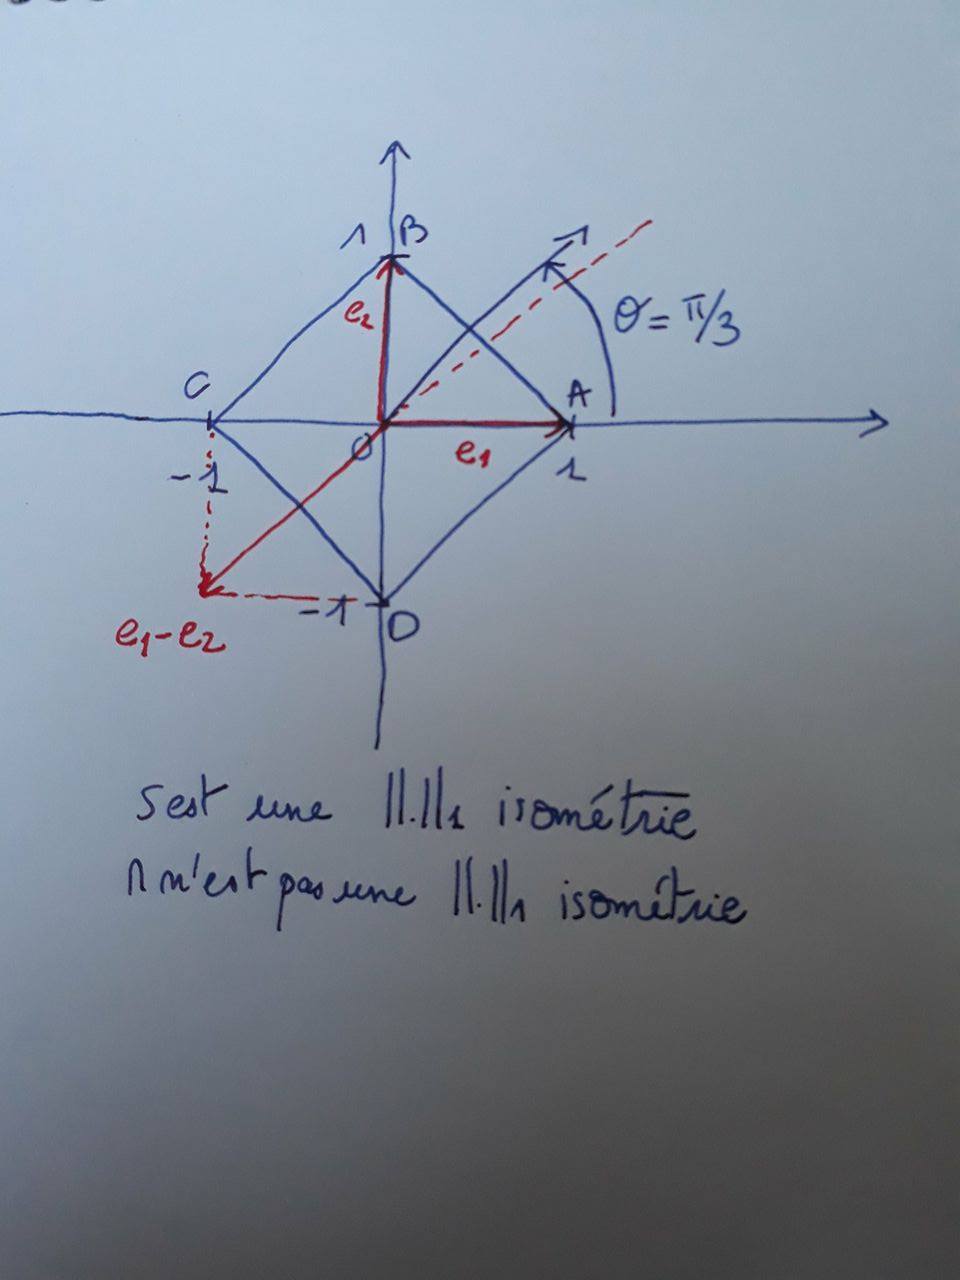 1 B
e2
θ = π/3
C
A
O
e1
-1
1
-1
D
e1-e2
s est une ||.||1 isométrie
r n'est pas une ||.||1 isométrie